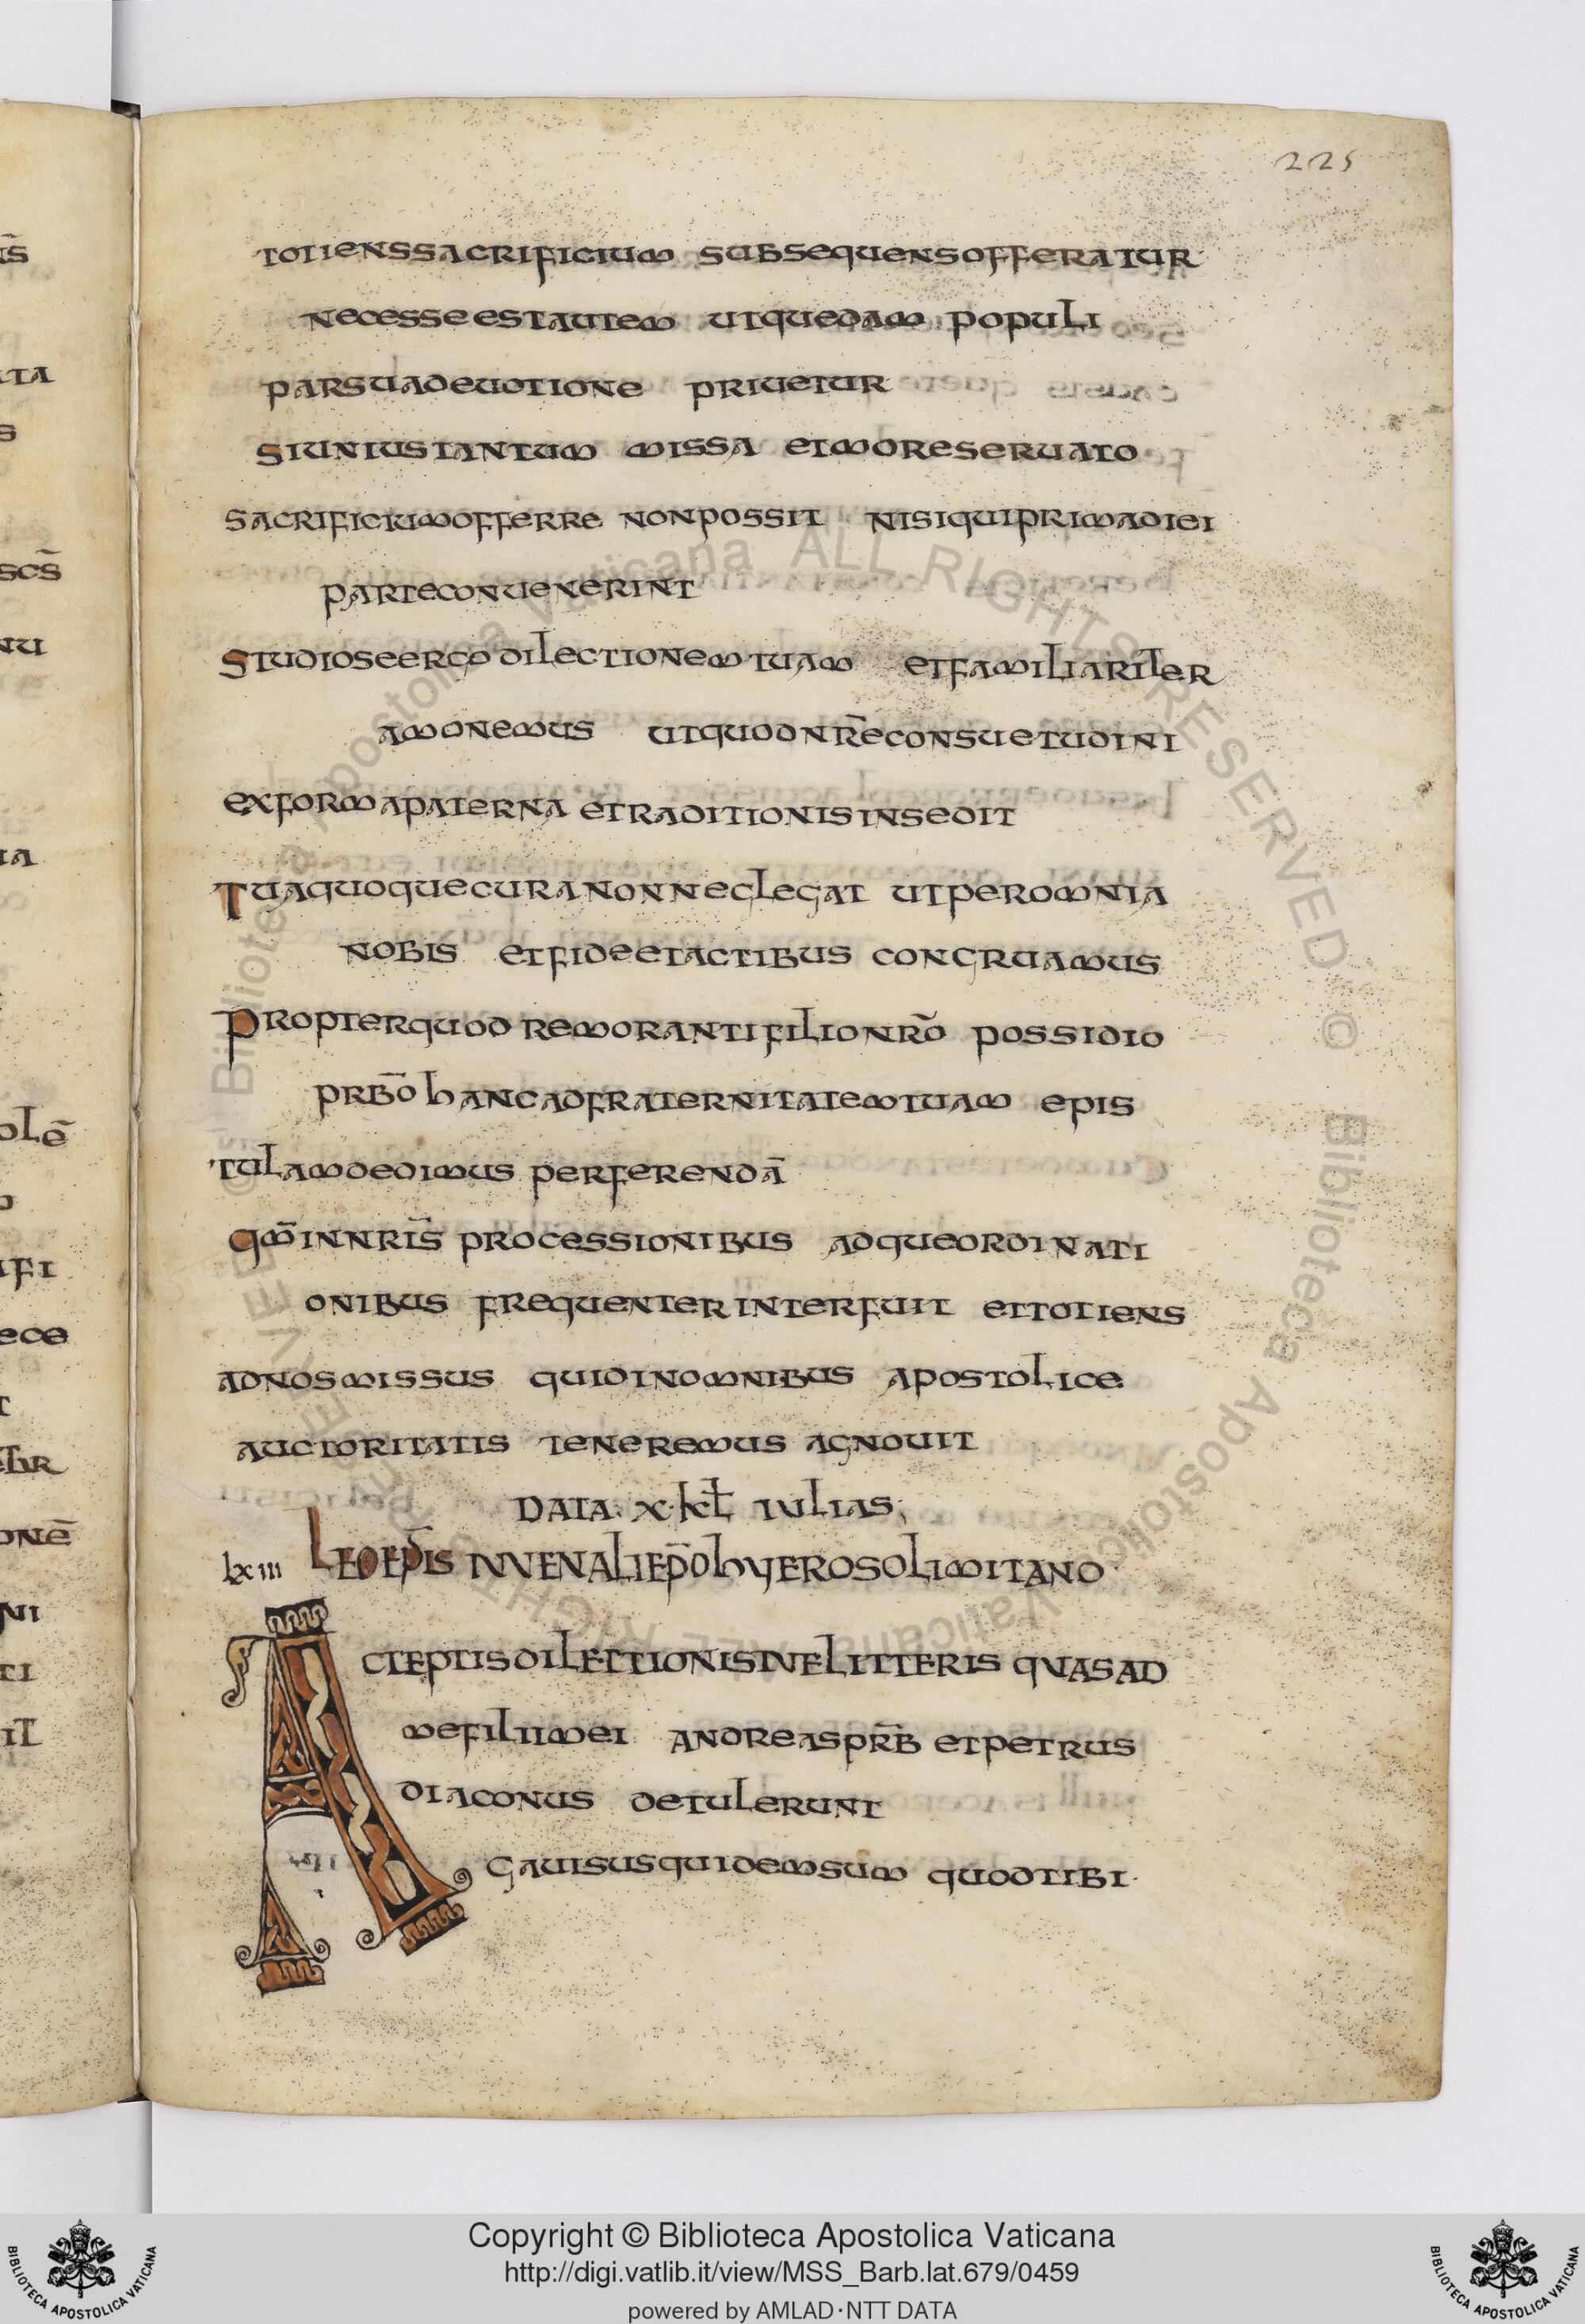 225
totiens sacrificium subsequens offeratur
necesse est autem ut quedam populi
pars ua deuotione priuetur
si unius tantum missa et more seruato
sacrificium offerre non possit nisi qui prima diei
parte conuenerint
studiose ergo dilectionem tuam et familiariter
amonemus ut quod nr̅e consuetudini
ex forma paterna et raditionis insedit
Tua quoque cura non neglegat ut per omnia
nobis et fide et actibus congruamus
Propter quod remoranti filio nr̅o possidio
prb̅o hanc ad fraternitatem tuam epis
tulam dedimus perferendā
qm̅ in nris̅ processionibus adque ordinati
onibus frequenter interfuit et totiens
ad nos missus quid in omnibus apostolice
auctoritatis teneremus agnouit
DATA· X· kl̅ IULIAS;
lxiii LEO EP̅IS IUVENALI EP̅O hYEROSOLIMITANO
ACTEPTIS DILECTIONIS TVE LITTERIS QVAS AD
me filii mei andreas pr̅b et petrus
diaconus detulerunt
Gauisus quidem sum quod tibi·
Copyright © Biblioteca Apostolica Vaticana
http://digi.vatlib.it/view/MSS_Barb.lat.679/0459
powered by AMLAD·NTT DATA
BIBLIOTECA APOSTOLICA VATICANA
BIBLIOTECA APOSTOLICA VATICANA